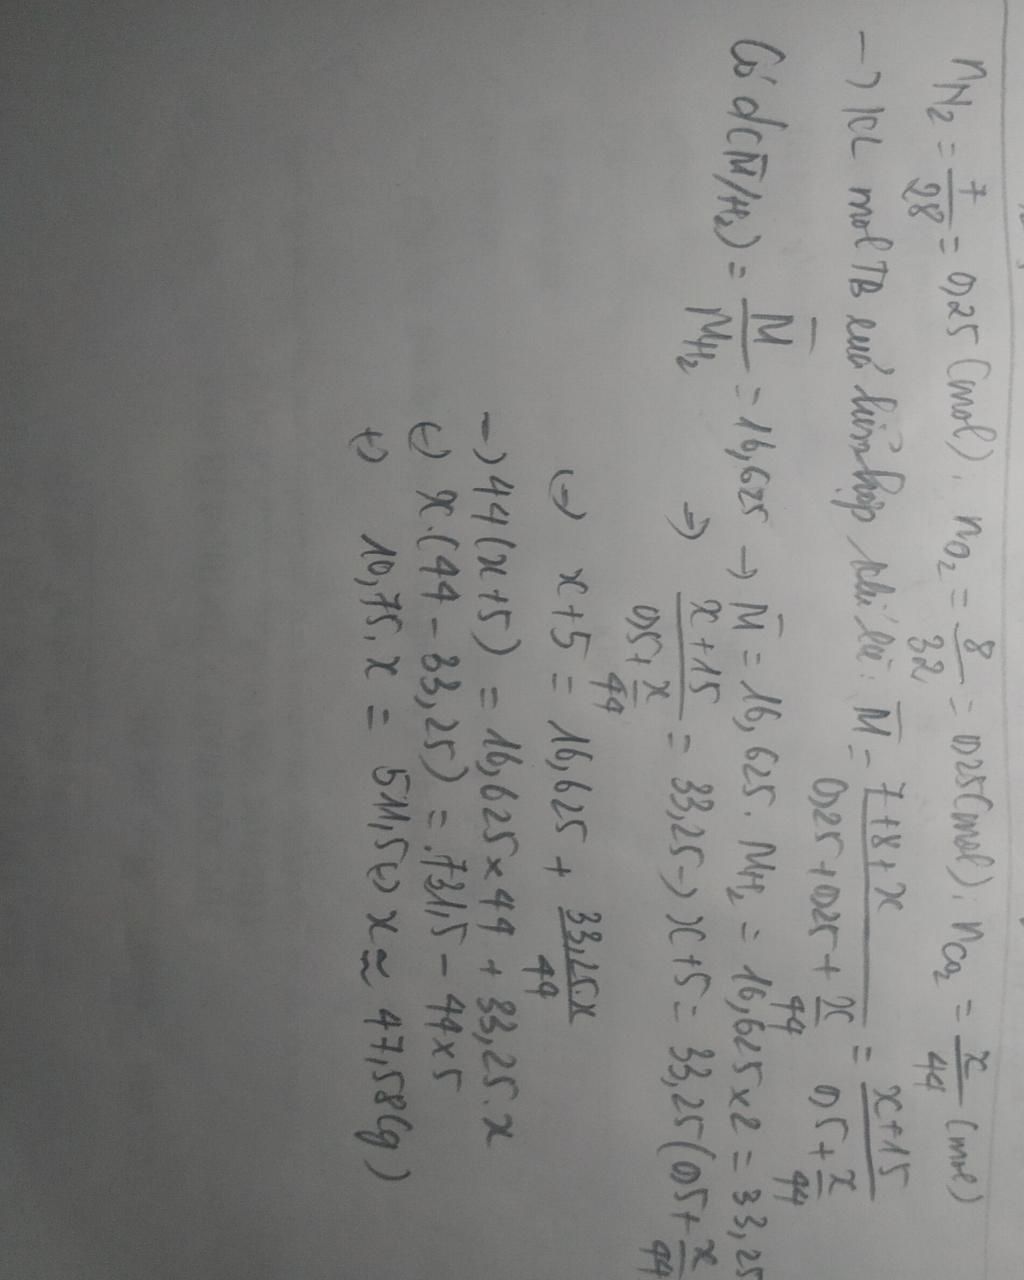 n_N2 = 7/28 = 0,25 (mol); n_O2 = 8/32 = 0,25 (mol); n_CO2 = x/44 (mol)
→ KL mol TB của hỗn hợp khí là: M̄ = (7+8+x)/(0,25+0,25+x/44) = (x+15)/(0,5+x/44)
Có d(M̄/H2) = M̄/M_H2 = 16,625 → M̄ = 16,625. M_H2 = 16,625 x 2 = 33,25
→ (x+15)/(0,5+x/44) = 33,25 → x+5 = 33,25(0,5+x/44)
(→) x+5 = 16,625 + 33,25.x/44
→ 44(x+5) = 16,625 x 44 + 33,25.x
(→) x.(44 - 33,25) = 731,5 - 44x5
(→) 10,75.x = 511,5 (→) x ≈ 47,58 (g)